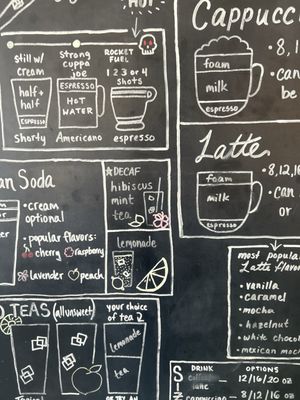 HOT
still w/
cream
half +
half
espresso
Shorty
Strong
cuppa
joe
ESPRESSO
HOT
WATER
Americano
ROCKET
FUEL
1 2 3 or 4
shots
espresso
Cappucc
foam
milk
espresso
• 8,1
• can
be
Latte
foam
milk
espresso
• 8,12,16
• can
or
an Soda
• cream
optional
• popular flavors:
cherry raspberry
lavender peach
★DECAF
hibiscus
mint
tea
lemonade
TEAS (all unsweet)
your choice
of tea
lemonade
tea
most popula
Latte flavor
• vanilla
• caramel
• mocha
• hazelnut
• white choco
• mexican moc
DRINK
OPTIONS
SIZ
12/16/20 oz
cappuccino
8/12/16 oz